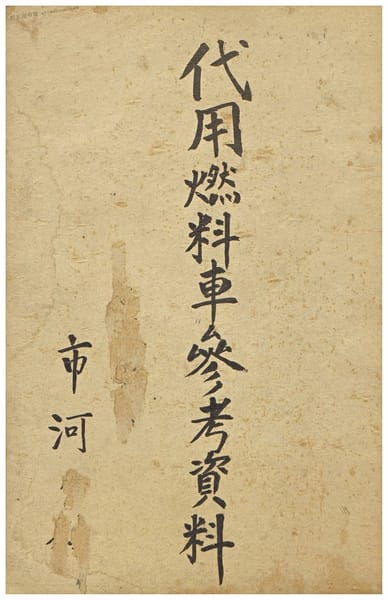 代用燃料車參考資料
市河